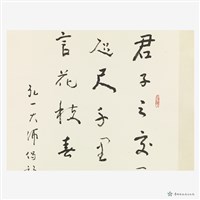 君子之交
咫尺千里
言花枝春
弘一大师偈